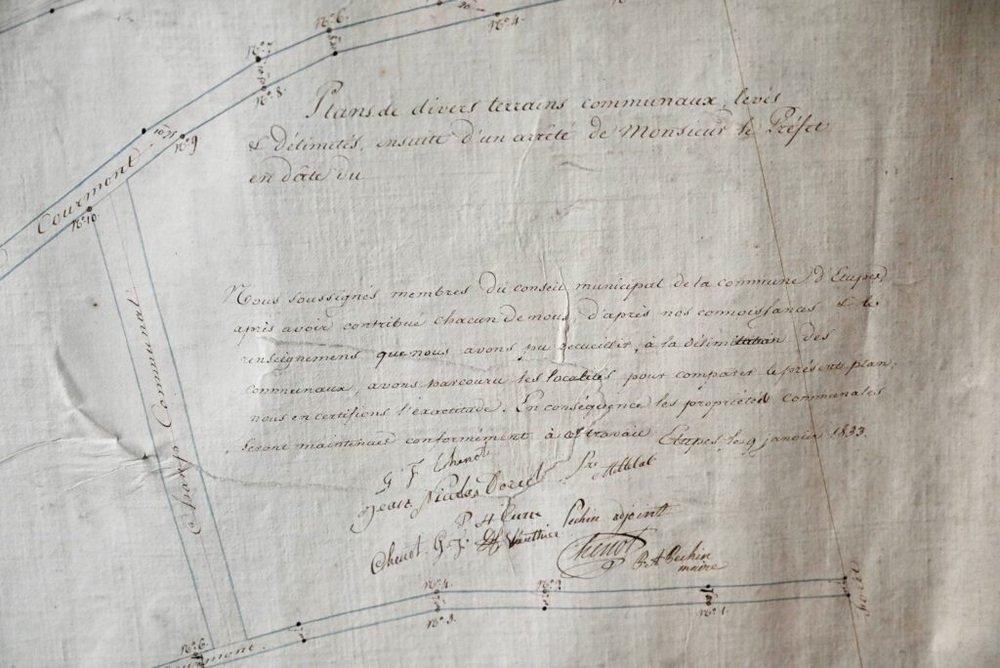 N.º 6.
N.º 4.
N.º 7.
N.º 8.
N.º 9
Courmont
N.º 10.
Plans de divers terrains communaux, levés
& Délimités, ensuite d'un arrêté de Monsieur le Préfet
en dâte du
Nous soussignés membres du conseil municipal de la commune d'Etupes,
après avoir contribué chacun de nous, d'après nos connoissances & le
renseignemens que nous avons pu recueillir, à la délimitation des
communaux, avons parcouru les localités pour comparer le présent plan,
nous en certifions l'exactitude. En conséquence les propriétés communales
seront maintenues conformément à ce travail Etupes, le 9 janvier 1833.
Communal
G F Chenot
Jean Nicolas
Pechin adjoint
Chenot G. J. Vauthier
Chenot
P. A Pechin
maire
N.º 4.
N.º 3.
N.º 2.
N.º 1.
N.º 6.